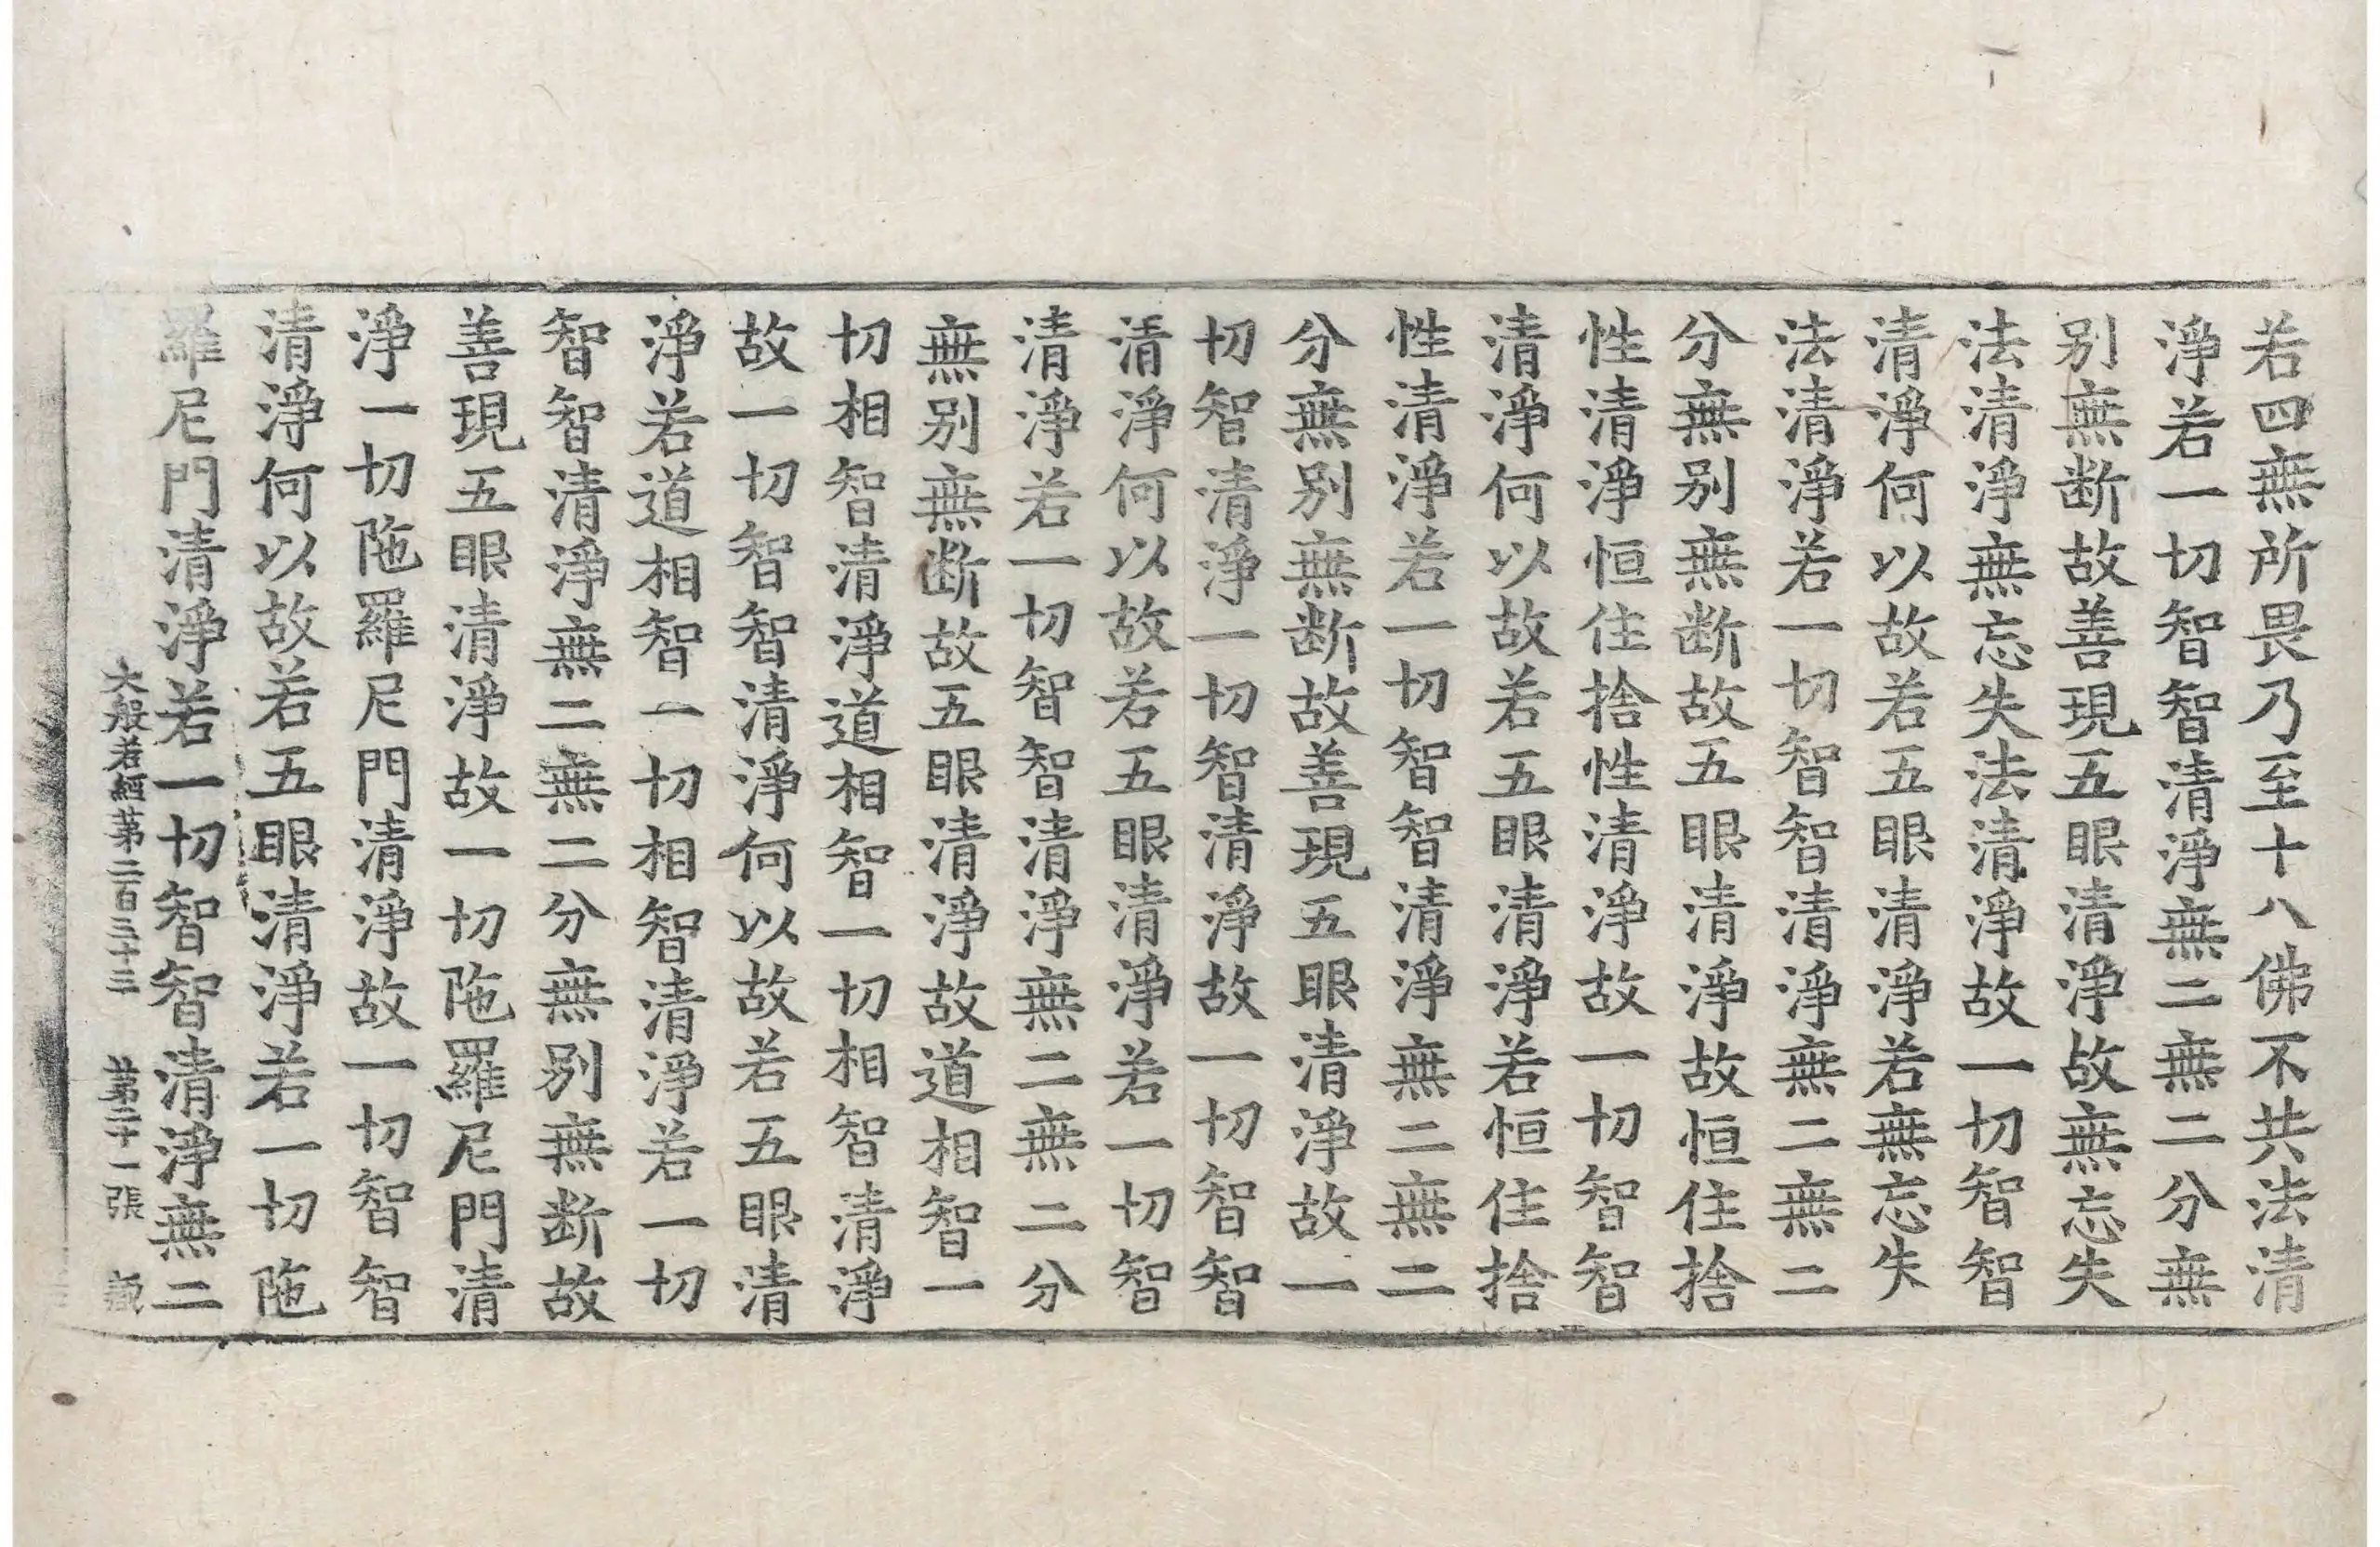 若四無所畏乃至十八佛不共法清
淨若一切智智清淨無二無二分無
别無断故善現五眼清淨故無忘失
法清淨無忘失法清淨故一切智智
清淨何以故若五眼清淨若無忘失
法清淨若一切智智清淨無二無二
分無别無断故五眼清淨故恒住捨
性清淨恒住捨性清淨故一切智智
清淨何以故若五眼清淨若恒住捨
性清淨若一切智智清淨無二無二
分無别無断故善現五眼清淨故一
切智清淨一切智清淨故一切智智
清淨何以故若五眼清淨若一切智
清淨若一切智智清淨無二無二分
無别無断故五眼清淨故道相智一
切相智清淨道相智一切相智清淨
故一切智智清淨何以故若五眼清
淨若道相智一切相智清淨若一切
智智清淨無二無二分無别無断故
善現五眼清淨故一切陁羅尼門清
淨一切陁羅尼門清淨故一切智智
清淨何以故若五眼清淨若一切陁
羅尼門清淨若一切智智清淨無二
大般若經苐二百三十三 苐二十一張